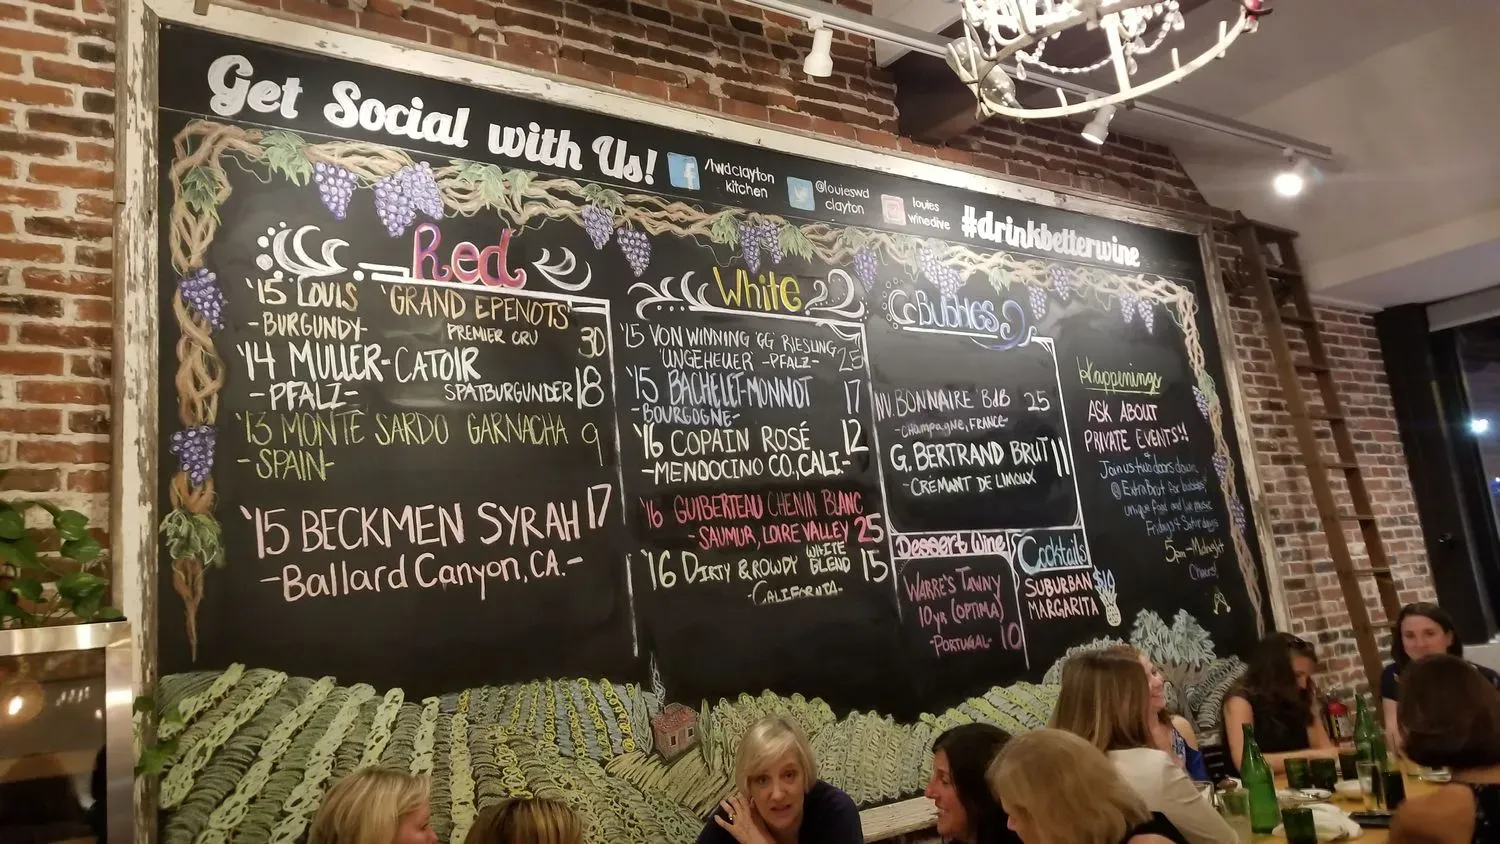 Get Social with Us!
/lwdclayton
kitchen
@louieswd
clayton
louies
winedive
#drinkbetterwine
Red
'15 LOUIS 'GRAND EPENOTS'
-BURGUNDY- PREMIER CRU 30
'14 MULLER-CATOIR
-PFALZ- SPATBURGUNDER 18
'13 MONTE SARDO GARNACHA 9
-SPAIN-
'15 BECKMEN SYRAH 17
-Ballard Canyon, CA.-
White
'15 VON WINNING 'GG' RIESLING 25
'UNGEHEUER' -PFALZ-
'15 BACHELET-MONNOT 17
-BOURGOGNE-
'16 COPAIN ROSÉ 12
-MENDOCINO CO, CALI.-
'16 GUIBERTEAU CHENIN BLANC
-SAUMUR, LOIRE VALLEY 25
'16 DIRTY & ROWDY WHITE BLEND 15
-CALIFORNIA-
Bubbles
NV. BONNAIRE BdB 25
-Champagne, FRANCE-
G. BERTRAND BRUT 11
-CRÉMANT DE LIMOUX
Dessert Wine
WARRE'S TAWNY
10yr (OPTIMA)
-PORTUGAL- 10
Cocktails
SUBURBAN $10
MARGARITA
Happenings
ASK ABOUT
PRIVATE EVENTS!!
Join us two doors down
@ ExtraBrut for bubbles
unique food and live music
Fridays & Saturdays
5pm-Midnight
Cheers!